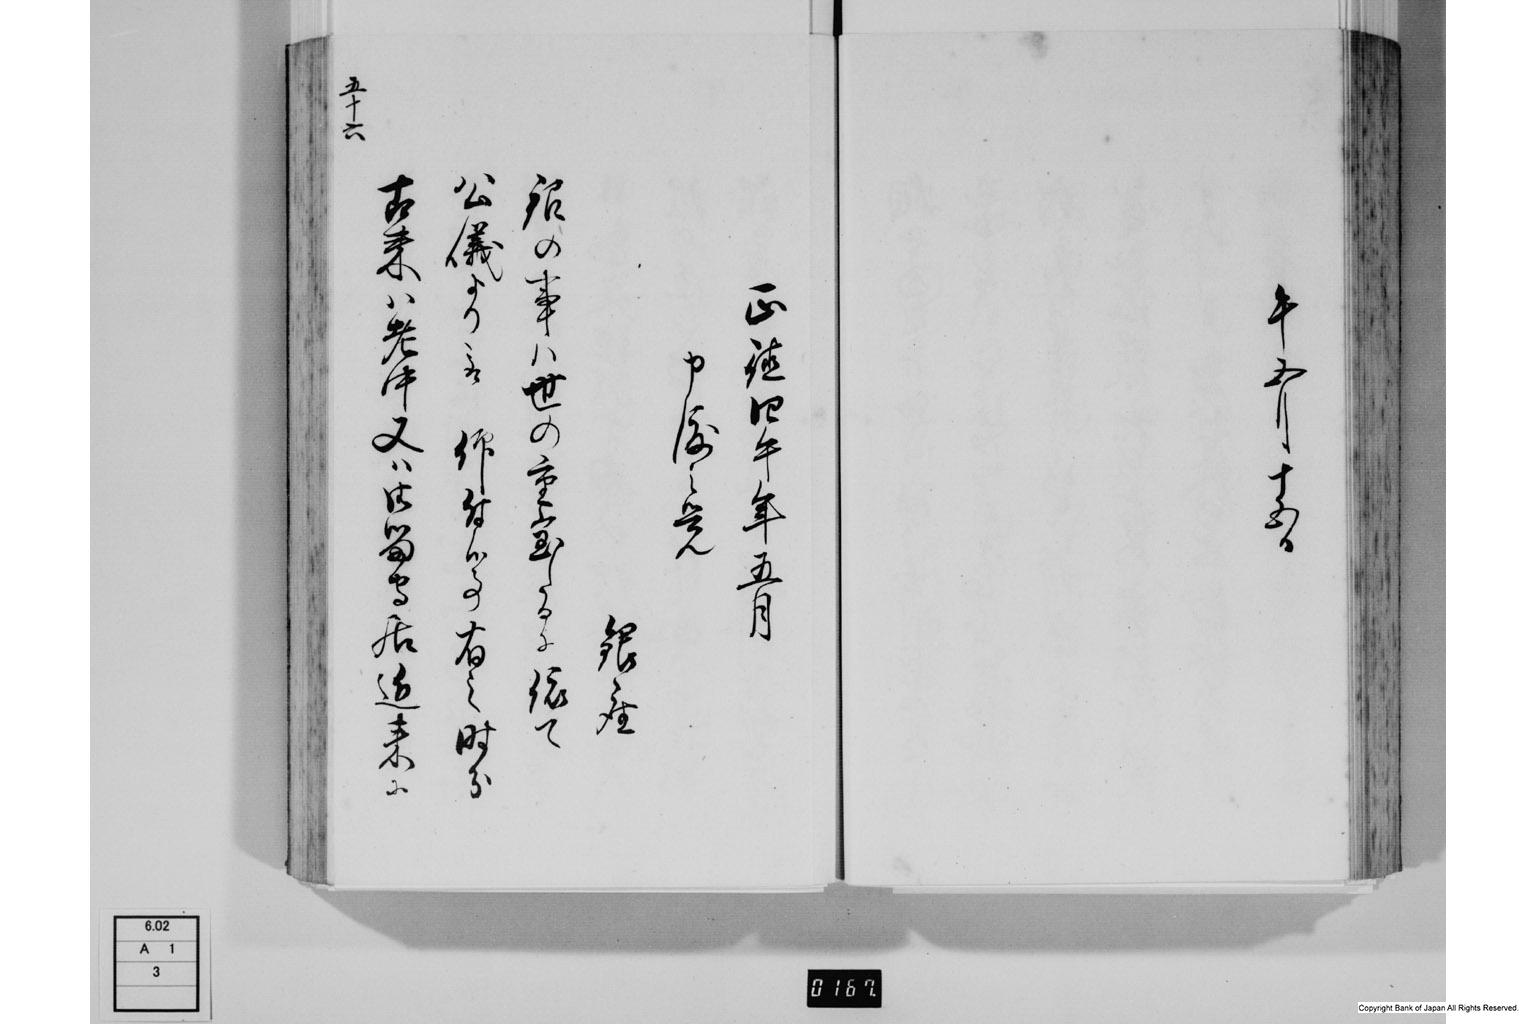 午五月十五日
正徳四午年五月
申渡之覚
銀座
銀の事ハ世の重宝したるに依て
公儀より被 仰付候事有之時分
古来ハ老中又ハ御留守居近来ハ
五十六
6.02
A 1
3
0167
Copyright Bank of Japan All Rights Reserved.